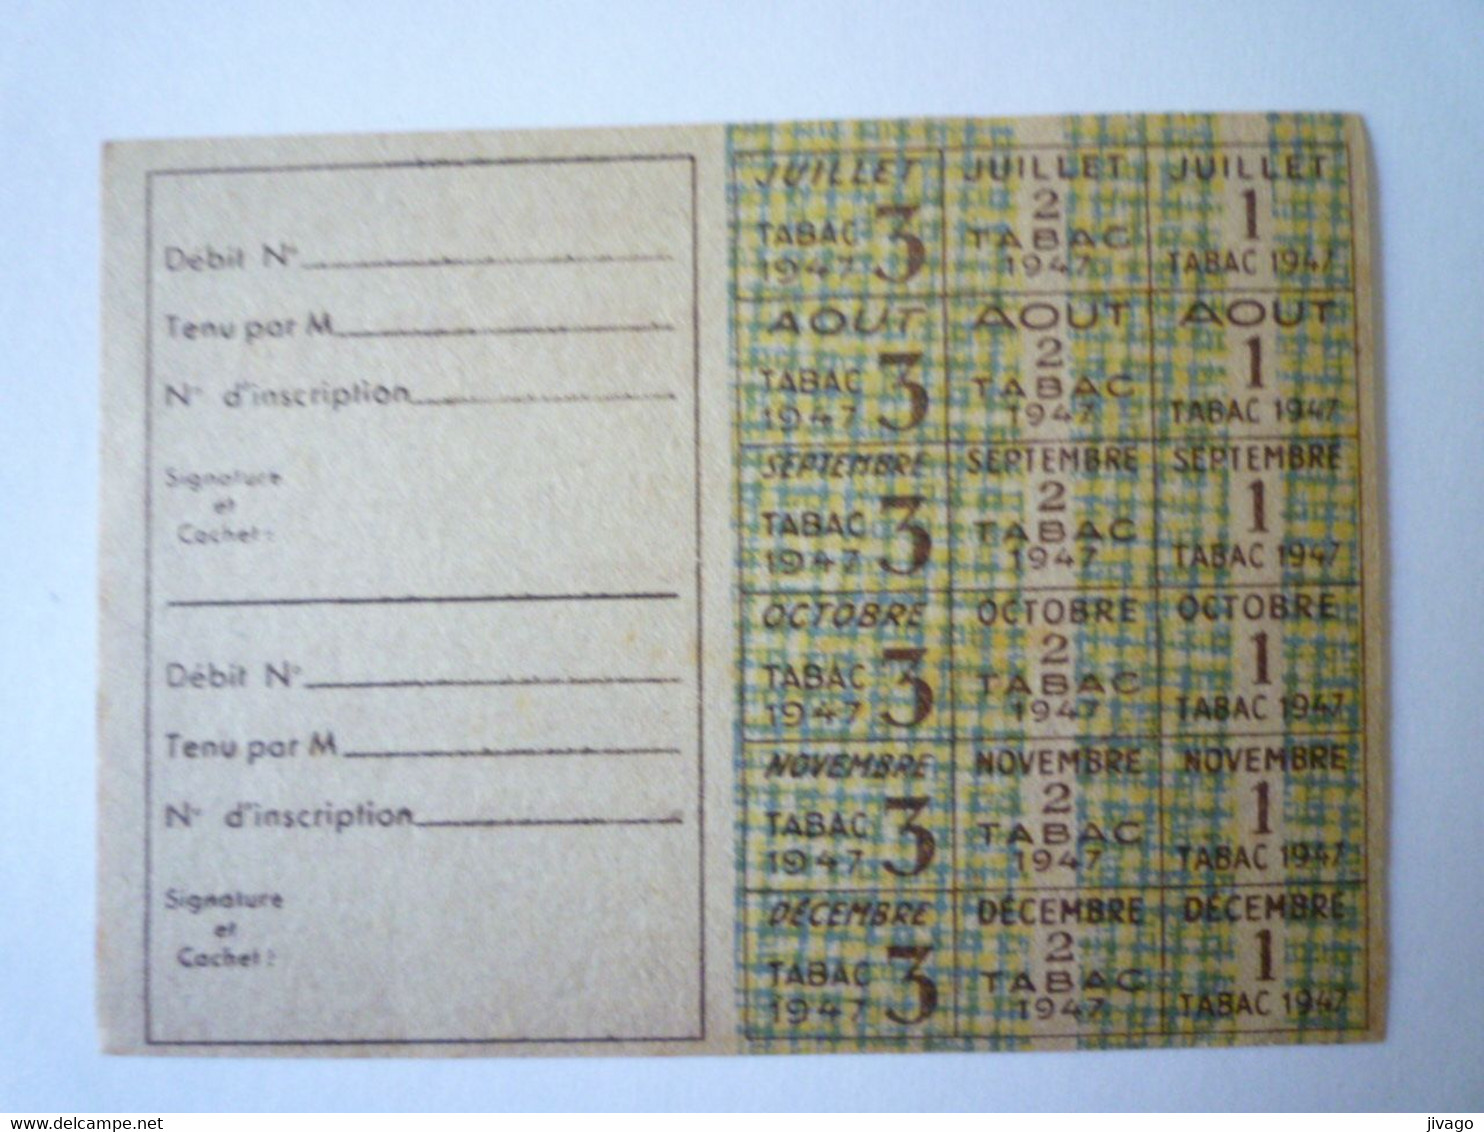 Débit N°
Tenu par M
N° d'inscription
Signature
et
Cachet :
Débit N°
Tenu par M
N° d'inscription
Signature
et
Cachet :
JUILLET
TABAC 3
1947
JUILLET
2
TABAC
1947
JUILLET
1
TABAC 1947
AOUT
TABAC 3
1947
AOUT
2
TABAC
1947
AOUT
1
TABAC 1947
SEPTEMBRE
TABAC 3
1947
SEPTEMBRE
2
TABAC
1947
SEPTEMBRE
1
TABAC 1947
OCTOBRE
TABAC 3
1947
OCTOBRE
2
TABAC
1947
OCTOBRE
1
TABAC 1947
NOVEMBRE
TABAC 3
1947
NOVEMBRE
2
TABAC
1947
NOVEMBRE
1
TABAC 1947
DÉCEMBRE
TABAC 3
1947
DÉCEMBRE
2
TABAC
1947
DÉCEMBRE
1
TABAC 1947
delcampe.net
jivago